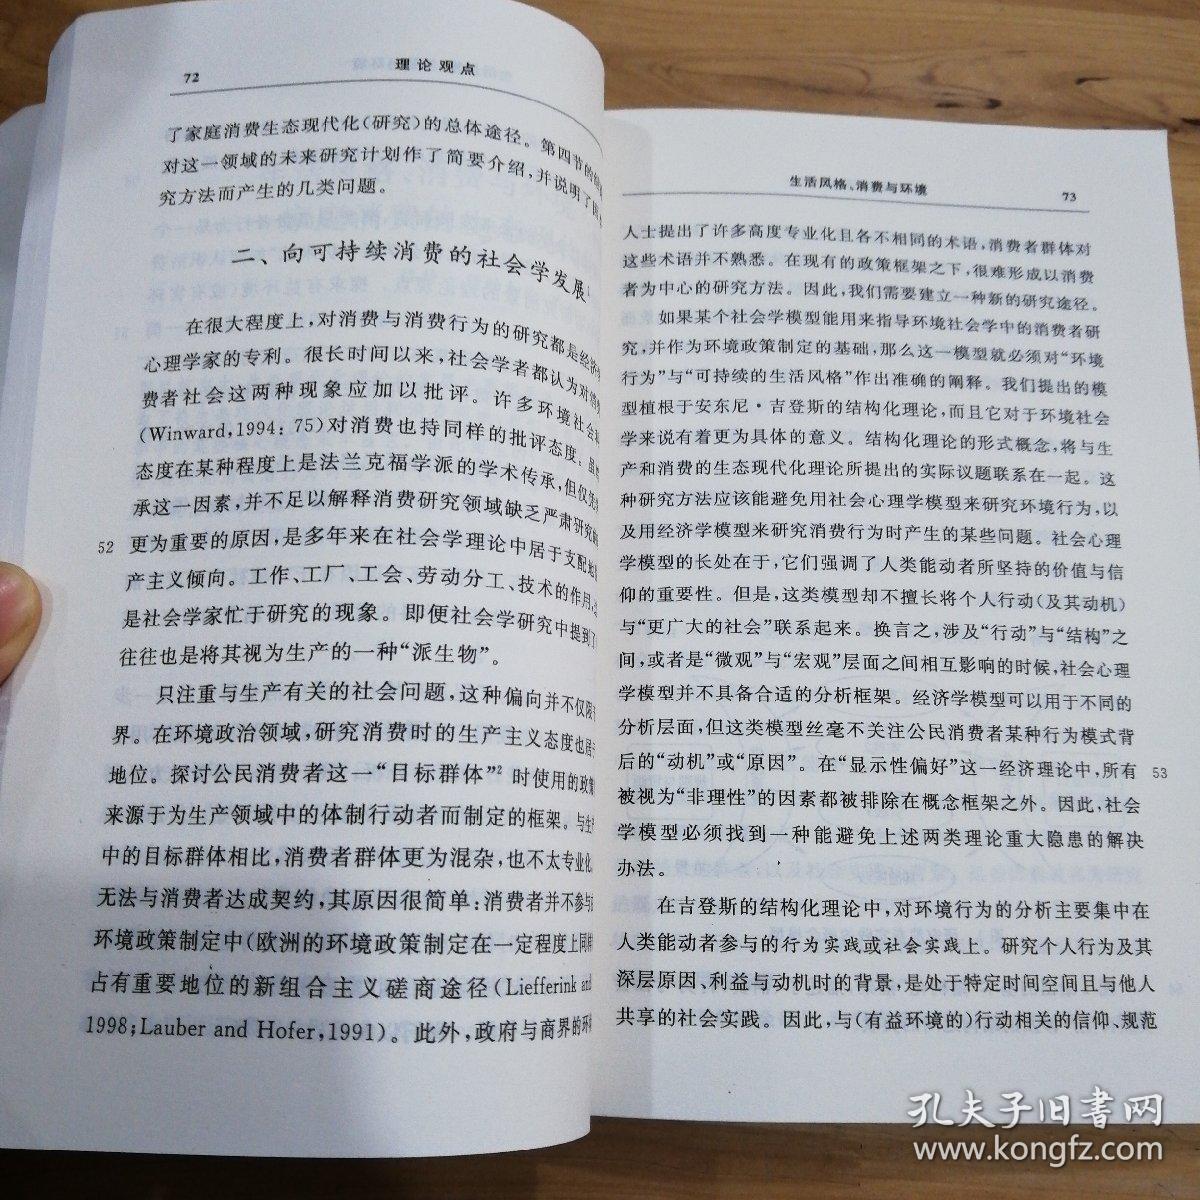 72
理论观点
了家庭消费生态现代化(研究)的总体途径。第四节的
对这一领域的未来研究计划作了简要介绍,并说明了因
究方法而产生的几类问题。
二、向可持续消费的社会学发展
在很大程度上,对消费与消费行为的研究都是经济
心理学家的专利。很长时间以来,社会学者都认为对消
费者社会这两种现象应加以批评。许多环境社会
(Winward,1994: 75)对消费也持同样的批评态度。虽
态度在某种程度上是法兰克福学派的学术传承,但仅凭
承这一因素,并不足以解释消费研究领域缺乏严肃研究
52 更为重要的原因,是多年来在社会学理论中居于支配地
产主义倾向。工作、工厂、工会、劳动分工、技术的作用,
是社会学家忙于研究的现象。即便社会学研究中提到了
往往也是将其视为生产的一种“派生物”。
只注重与生产有关的社会问题,这种偏向并不仅限
界。在环境政治领域,研究消费时的生产主义态度也居
地位。探讨公民消费者这一“目标群体”2 时使用的政策
来源于为生产领域中的体制行动者而制定的框架。与生
中的目标群体相比,消费者群体更为混杂,也不太专业化
无法与消费者达成契约,其原因很简单:消费者并不参与
环境政策制定中(欧洲的环境政策制定在一定程度上同样
占有重要地位的新组合主义磋商途径(Liefferink and
1998;Lauber and Hofer,1991)。此外,政府与商界的环
生活风格、消费与环境
73
人士提出了许多高度专业化且各不相同的术语,消费者群体对
这些术语并不熟悉。在现有的政策框架之下,很难形成以消费
者为中心的研究方法。因此,我们需要建立一种新的研究途径。
如果某个社会学模型能用来指导环境社会学中的消费者研
究,并作为环境政策制定的基础,那么这一模型就必须对“环境
行为”与“可持续的生活风格”作出准确的阐释。我们提出的模
型植根于安东尼·吉登斯的结构化理论,而且它对于环境社会
学来说有着更为具体的意义。结构化理论的形式概念,将与生
产和消费的生态现代化理论所提出的实际议题联系在一起。这
种研究方法应该能避免用社会心理学模型来研究环境行为,以
及用经济学模型来研究消费行为时产生的某些问题。社会心理
学模型的长处在于,它们强调了人类能动者所坚持的价值与信
仰的重要性。但是,这类模型却不擅长将个人行动(及其动机)
与“更广大的社会”联系起来。换言之,涉及“行动”与“结构”之
间,或者是“微观”与“宏观”层面之间相互影响的时候,社会心理
学模型并不具备合适的分析框架。经济学模型可以用于不同的
分析层面,但这类模型丝毫不关注公民消费者某种行为模式背
后的“动机”或“原因”。在“显示性偏好”这一经济理论中,所有 53
被视为“非理性”的因素都被排除在概念框架之外。因此,社会
学模型必须找到一种能避免上述两类理论重大隐患的解决
办法。
在吉登斯的结构化理论中,对环境行为的分析主要集中在
人类能动者参与的行为实践或社会实践上。研究个人行为及其
深层原因、利益与动机时的背景,是处于特定时间空间且与他人
共享的社会实践。因此,与(有益环境的)行动相关的信仰、规范
孔夫子旧书网
www.kongfz.com